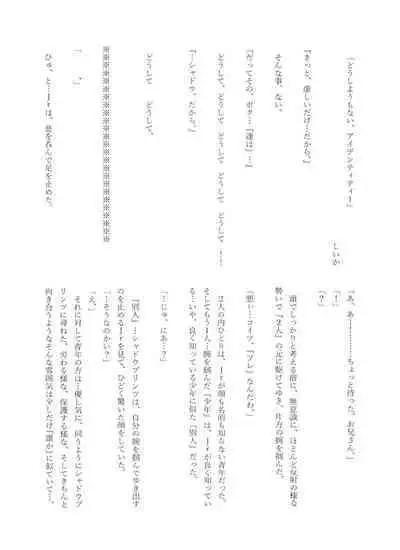 「どうしようもない、アイデンティティー」
しいか
『きっと、虚しいだけ…だから。』
そんな事、ない。
『だってその、ボク…『達は』…』
どうして、どうして　どうして　どうして　どうして　――！
『…シャドウ、だから。』
どうして　どうして
どうして、
※※※※※※※※※※※※※※※※※
「　　　、」
ひゅ、と…Ｊｒは、息を呑んで足を止めた。
「あ、あー―――――…ちょっと待った。お兄さん。」
「！」
「？」
頭でしっかりと考える前に、無意識に、ほとんど反射の様な
勢いで『２人』の元に駆けてゆき、片方の腕を掴んだ。
「悪い…コイツ、『ツレ』なんだわ。」
２人の内ひとりは、Ｊｒが顔も名前も知らない青年だった。
そしてもう１人…腕を掴んだ『少年』は、Ｊｒが良く知ってい
る…いや、良く知っている少年に似た『別人』だった。
「…じゅ、にあ…？」
『別人』…シャドウプリンツは、自分の腕を掴んで歩き出す
のを止めるＪｒを見て、ひどく驚いた顔をしていた。
「…そうなのかい？」
「え、」
それに対して青年の方は…優しげに、伺うようにシャドウプ
リンツに尋ねた。労わる様な、保護する様な、そしてきちんと
向き合うようなそんな雰囲気は少しだけ『誰か』に似ていて…、